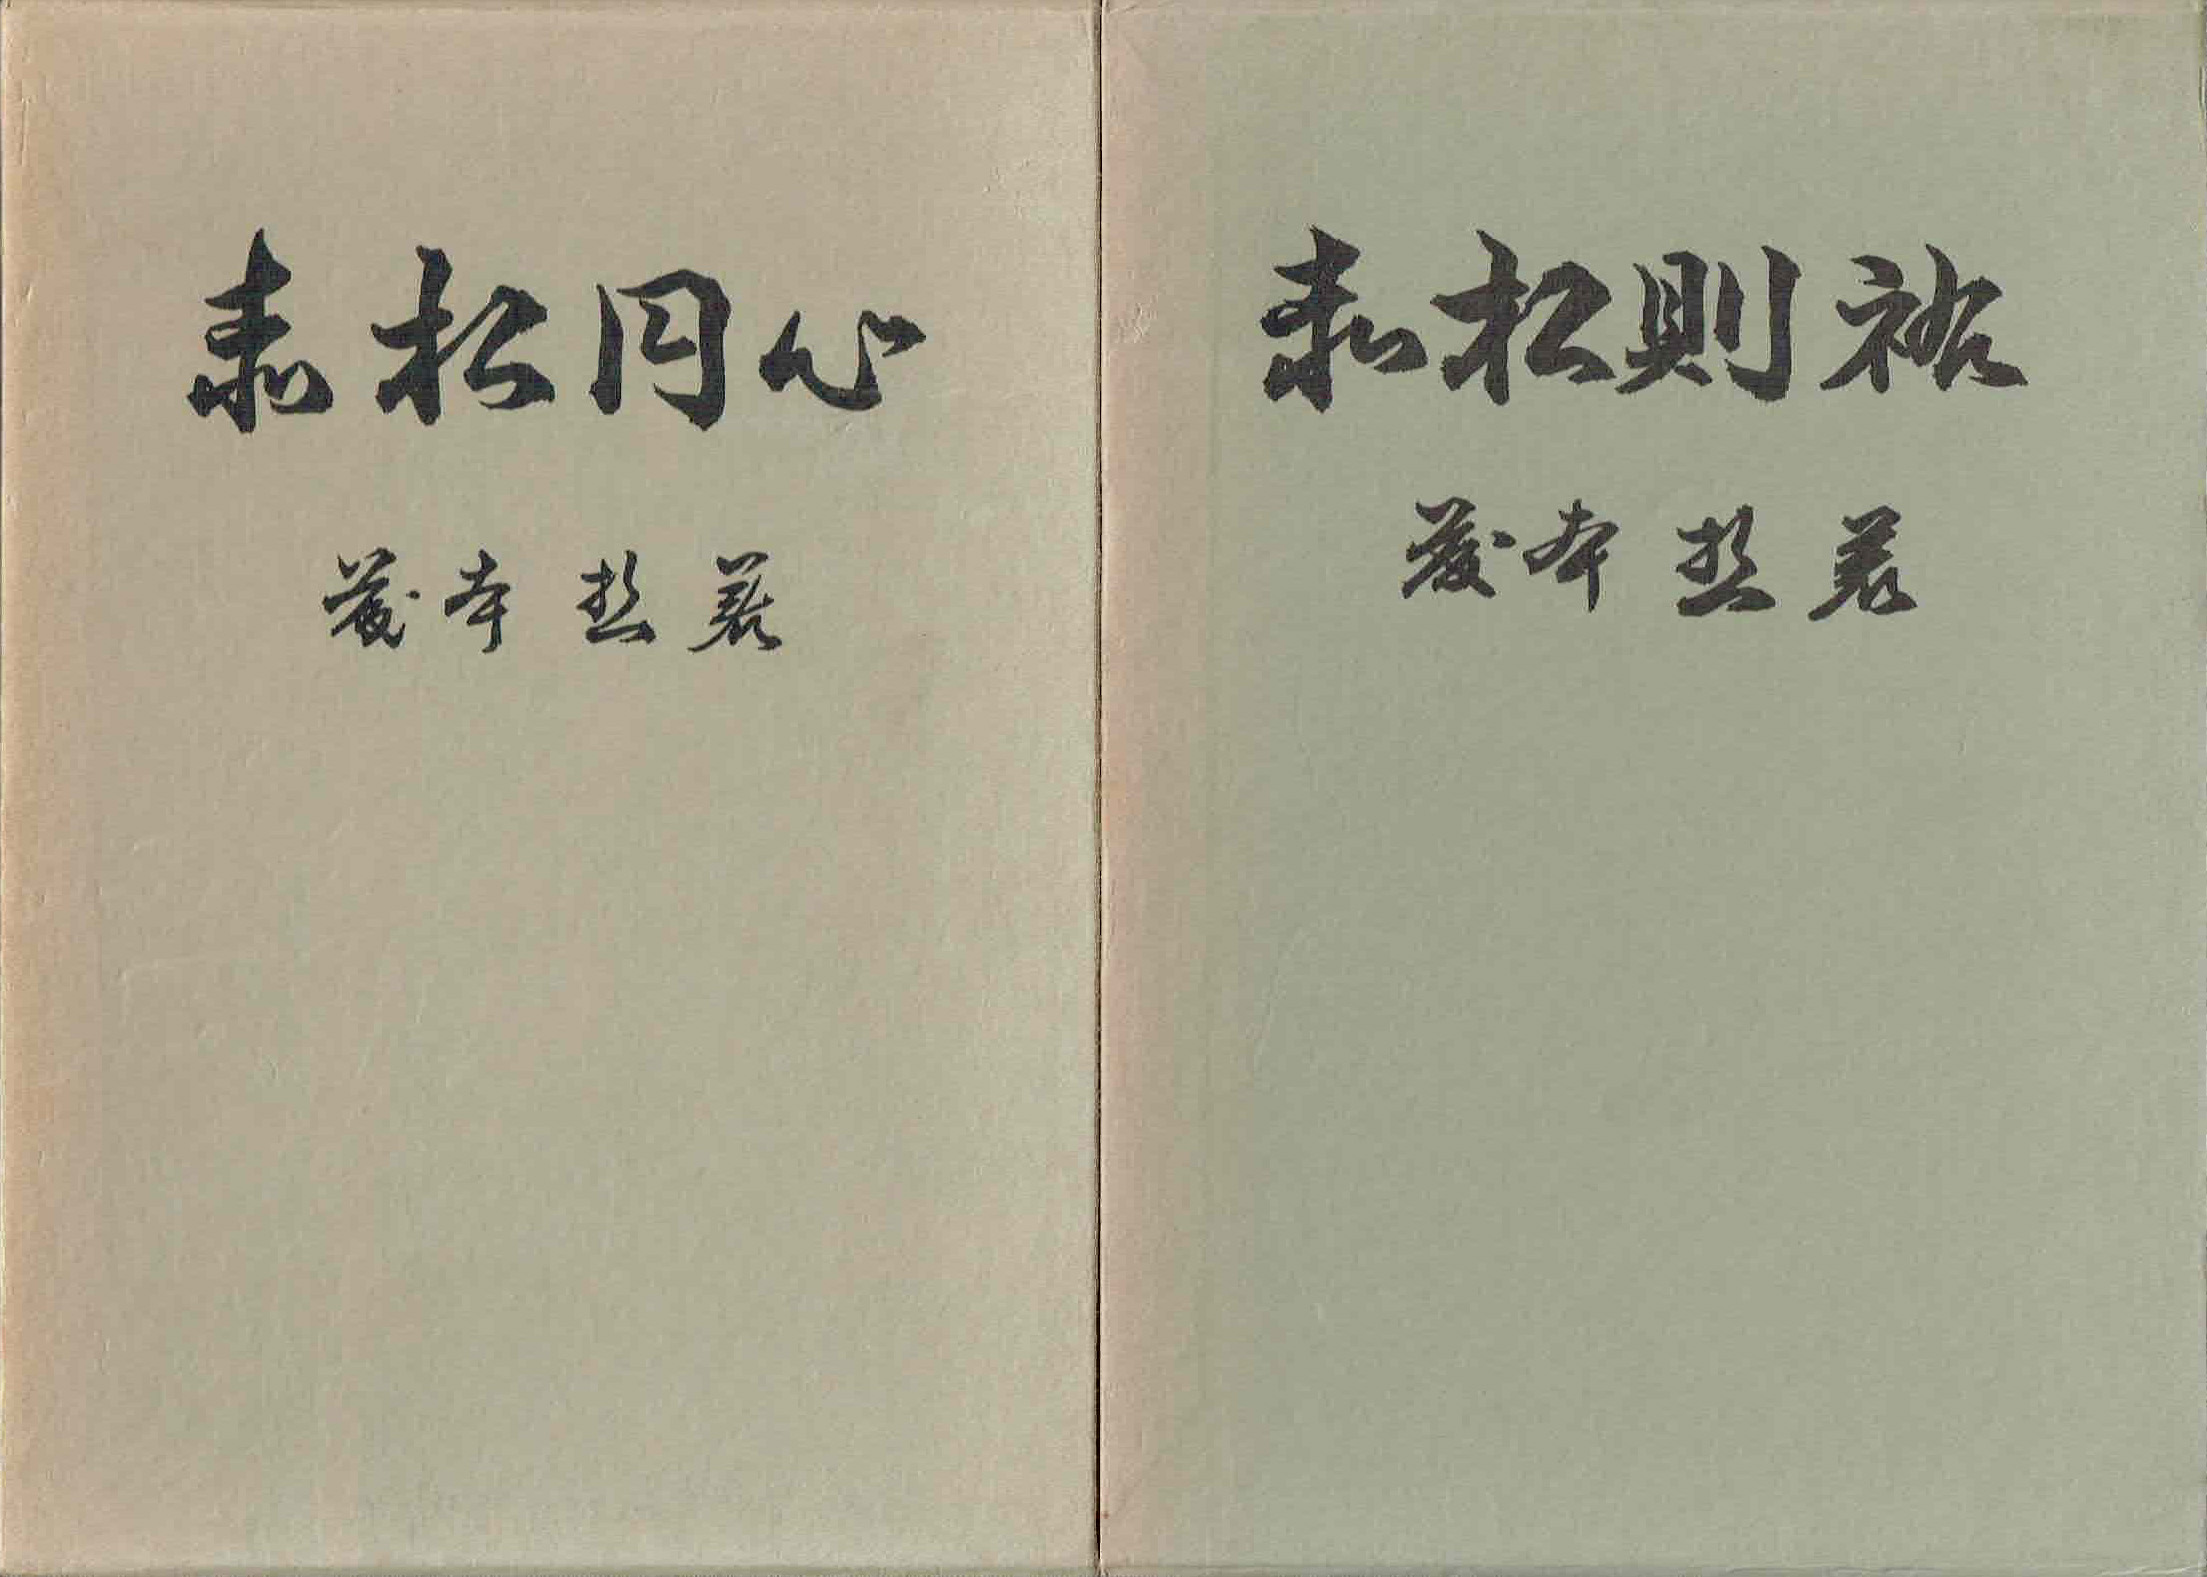 赤松円心
藤本哲著
赤松則祐
藤本哲著